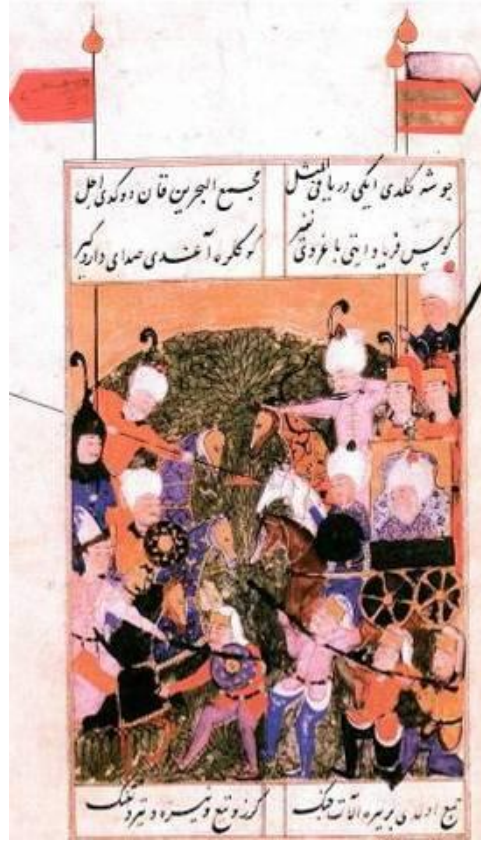 جوشه کلدی ایکی دریا فی المثل
مجمع البحرین قان دوکدی اجل
کوس فریاد ایتدی باغردی نفیر
کوکلره آغندی صدای دار و کیر
اولدی بریره الات جنک
کرز و تیغ و نیزه و تیر و تفنک